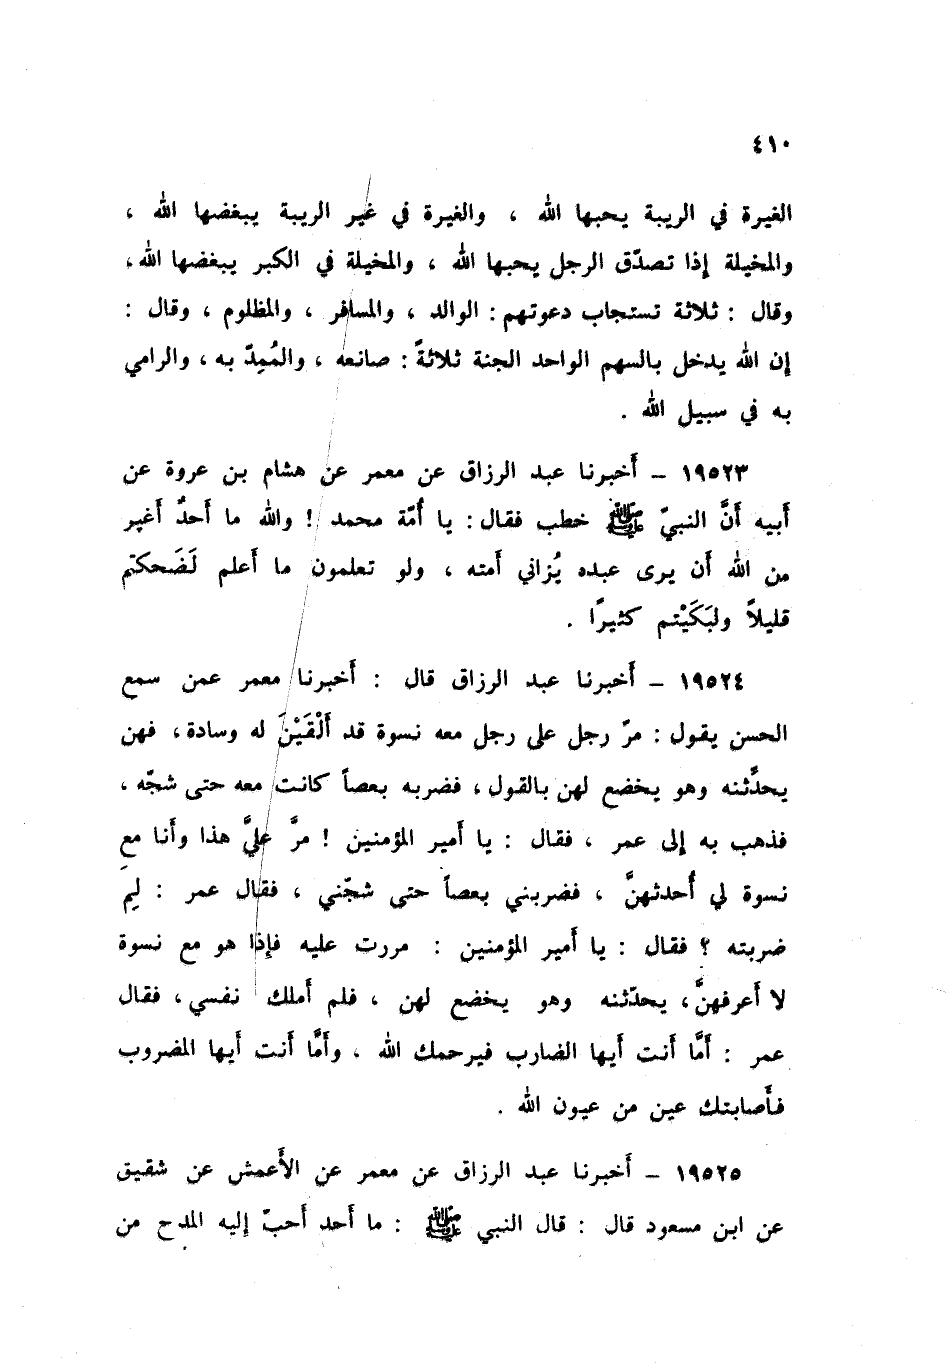 ٤١٠
الغيرة في الريبة يحبها الله ، والغيرة في غير الريبة يبغضها الله ،
والمخيلة إذا تصدّق الرجل يحبها الله ، والمخيلة في الكبر يبغضها الله،
وقال : ثلاثة تستجاب دعوتهم : الوالد ، والمسافر ، والمظلوم ، وقال :
إن الله يدخل بالسهم الواحد الجنة ثلاثةً : صانعه ، والمُمِدّ به ، والرامي
به في سبيل الله .
١٩٥٢٣ – أَخبرنا عبد الرزاق عن معمر عن هشام بن عروة عن
أَبيه أَنَّ النبيّ ﷺ خطب فقال : يا أُمّة محمد ! والله ما أَحدٌ أَغير
من الله أَن يرى عبده يُزاني أَمته ، ولو تعلمون ما أَعلم لَضَحكتم
قليلاً ولبَكَيْتم كثيرًا .
١٩٥٢٤ – أَخبرنا عبد الرزاق قال : أَخبرنا معمر عمن سمع
الحسن يقول : مرّ رجل على رجل معه نسوة قد أَلْقَيْنَ له وسادة ، فهن
يحدَّثنه وهو يخضع لهن بالقول ، فضربه بعصاً كانت معه حتى شجّه ،
فذهب به إلى عمر ، فقال : يا أَمير المؤمنين ! مرَّ عليَّ هذا وأَنا مع
نسوة لي أُحدثهنَّ ، فضربني بعصاً حتى شجّني ، فقال عمر : لِمَ
ضربته ؟ فقال : يا أَمير المؤمنين : مررت عليه فإِذا هو مع نسوة
لا أَعرفهنَّ ، يحدّثنه وهو يخضع لهن ، فلم أَملك نفسي ، فقال
عمر : أَمَّا أَنت أَيها الضارب فيرحمك الله ، وأَمَّا أَنت أَيها المضروب
فأَصابتك عين من عيون الله .
١٩٥٢٥ – أَخبرنا عبد الرزاق عن معمر عن الأَعمش عن شقيق
عن ابن مسعود قال : قال النبي ﷺ : ما أَحد أَحبّ إليه المدح من